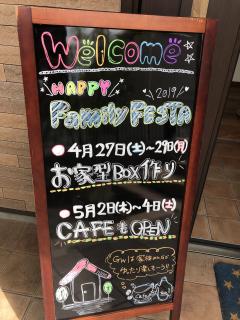 Welcome
HAPPY 2019
Family FESTA
4月27日(土)~29日(月)
お家型BOX作り
5月2日(木)~4日(土)
CAFEもOPEN
GWは家族みんなで